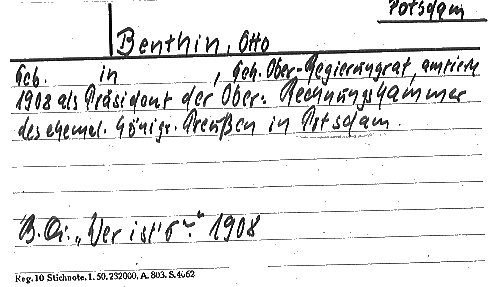 Potsdam
Benthin, Otto
Geb. in , Geh. Ober-Regierungrat, amtierte
1908 als Präsident der Ober-Rechnungskammer
des ehemal. Königr. Preußen in Potsdam.
B. Qi: „Wer ist's?" 1908
Reg. 10 Stichnote. I. 50. 232000. A. 803. S. 4062